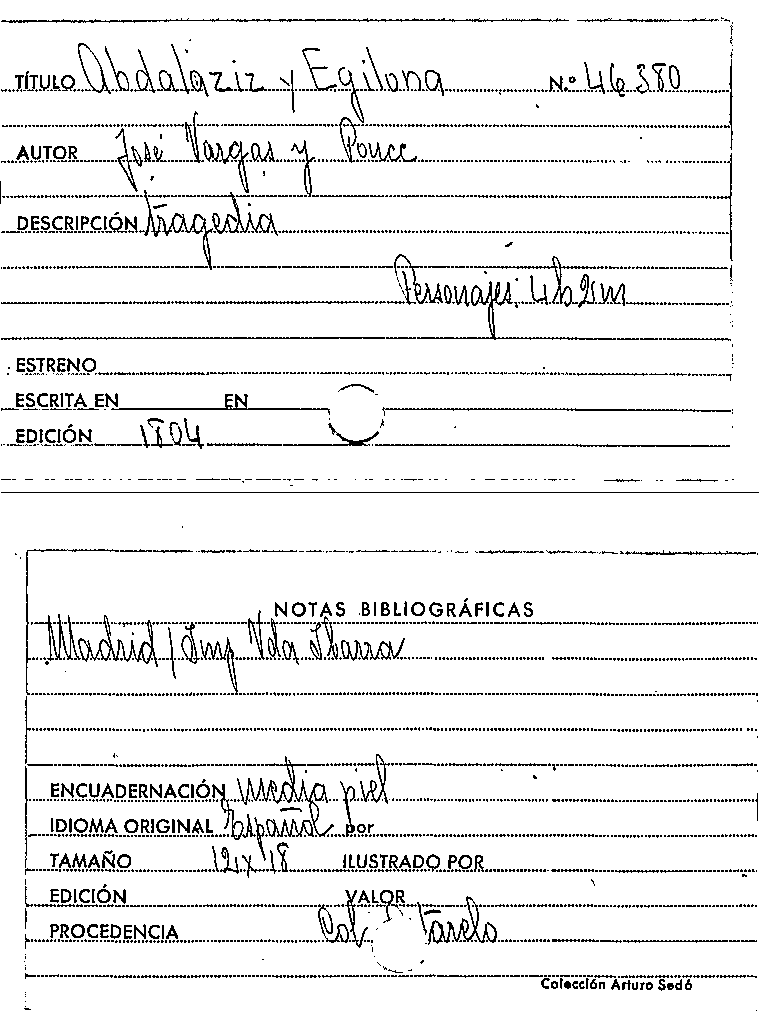 TÍTULO Abdalaziz y Egilona N.º 46380
AUTOR José Vargas y Ponce
DESCRIPCIÓN tragedia
Personajes: 4h 2m
ESTRENO
ESCRITA EN EN
EDICIÓN 1804
NOTAS BIBLIOGRÁFICAS
Madrid / Imp Vda Ibarra
ENCUADERNACIÓN media piel
IDIOMA ORIGINAL Español por
TAMAÑO 12 x 18 ILUSTRADO POR
EDICIÓN VALOR
PROCEDENCIA Col tarelo
Colección Arturo Sedó